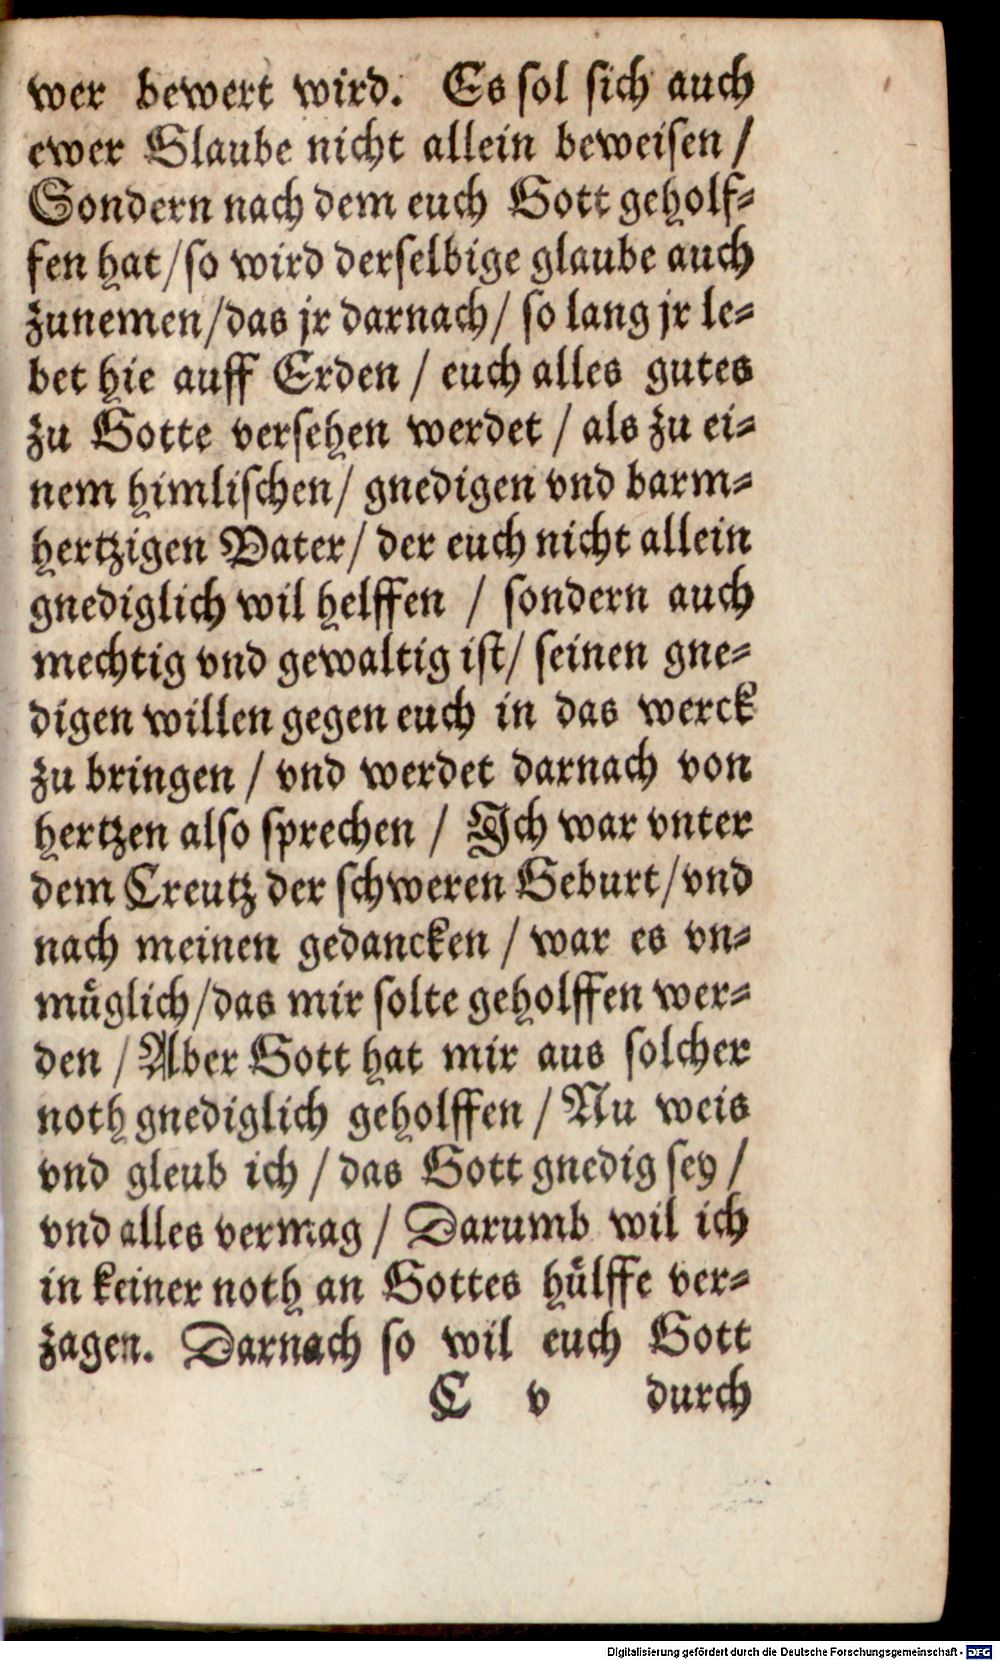 wer bewert wird. Es sol sich auch
ewer Glaube nicht allein beweisen /
Sondern nach dem euch Gott geholf-
fen hat / so wird derselbige glaube auch
zunemen / das jr darnach / so lang jr le-
bet hie auff Erden / euch alles gutes
zu Gotte versehen werdet / als zu ei-
nem himlischen / gnedigen vnd barm-
hertzigen Vater / der euch nicht allein
gnediglich wil helffen / sondern auch
mechtig vnd gewaltig ist / seinen gne-
digen willen gegen euch in das werck
zu bringen / vnd werdet darnach von
hertzen also sprechen / Ich war vnter
dem Creutz der schweren Geburt / vnd
nach meinen gedancken / war es vn-
müglich / das mir solte geholffen wer-
den / Aber Gott hat mir aus solcher
noth gnediglich geholffen / Nu weis
vnd gleub ich / das Gott gnedig sey /
vnd alles vermag / Darumb wil ich
in keiner noth an Gottes hülffe ver-
zagen. Darnach so wil euch Gott
C v durch
Digitalisierung gefördert durch die Deutsche Forschungsgemeinschaft - DFG